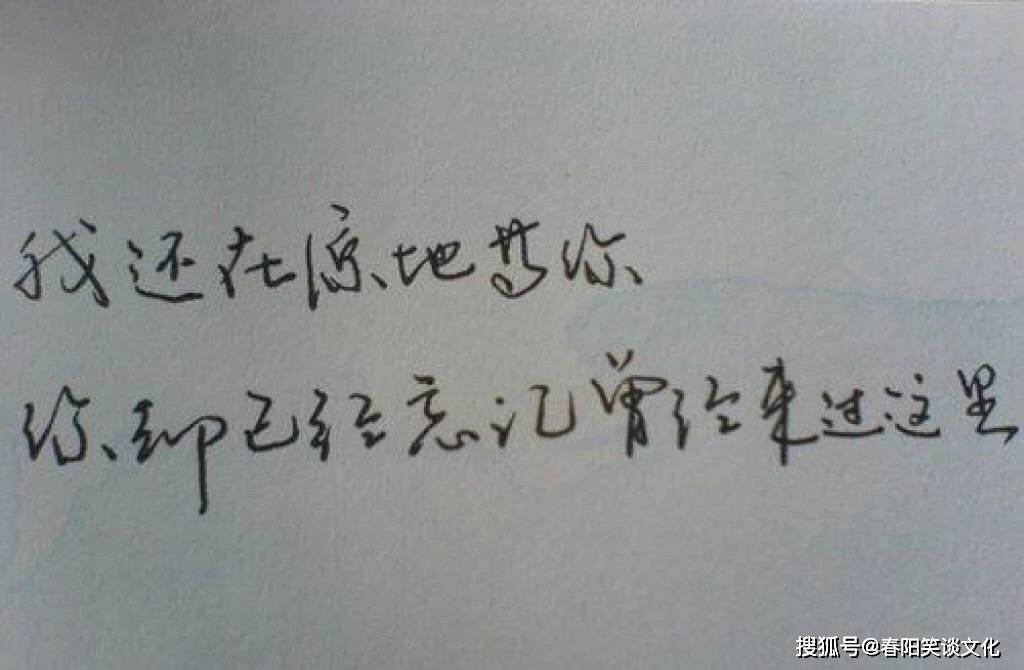 我还在原地等你
你却已经忘记曾经来过这里
搜狐号@春阳笑谈文化